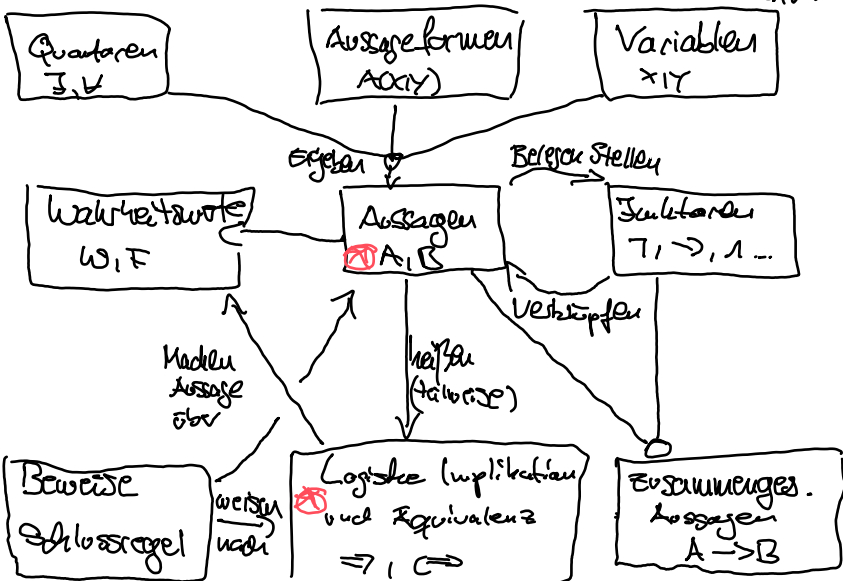 Quantoren
∃, ∀
Aussageformen
A(X,Y)
Variablen
X,Y
Ergeben
Belegen Stellen
Wahrheitswerte
W, F
Aussagen
A, B
Junktoren
¬, →, ∧ ...
Verknüpfen
Machen
Aussage
über
heißen
(teilweise)
Beweise
Schlussregel
weisen
nach
Logische Implikation
und Äquivalenz
⇒, ⇔
Zusammenges.
Aussagen
A → B